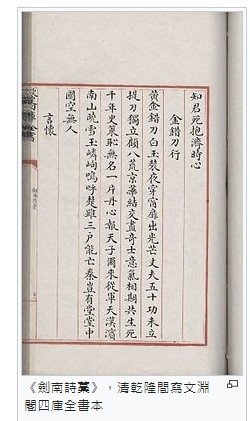 知君死抱濟時心
金錯刀行
黃金錯刀白玉裝夜穿窗扉出光芒丈夫五十功未立
提刀獨立顧八荒京華結交盡奇士意氣相期共生死
千年史策恥無名一片丹心報天子爾來從軍天漢濱
南山曉雪玉嶙峋嗚呼楚雖三戶能亡秦豈有堂堂中
國空無人
言懷
《劍南詩藁》，清乾隆間寫文淵
閣四庫全書本